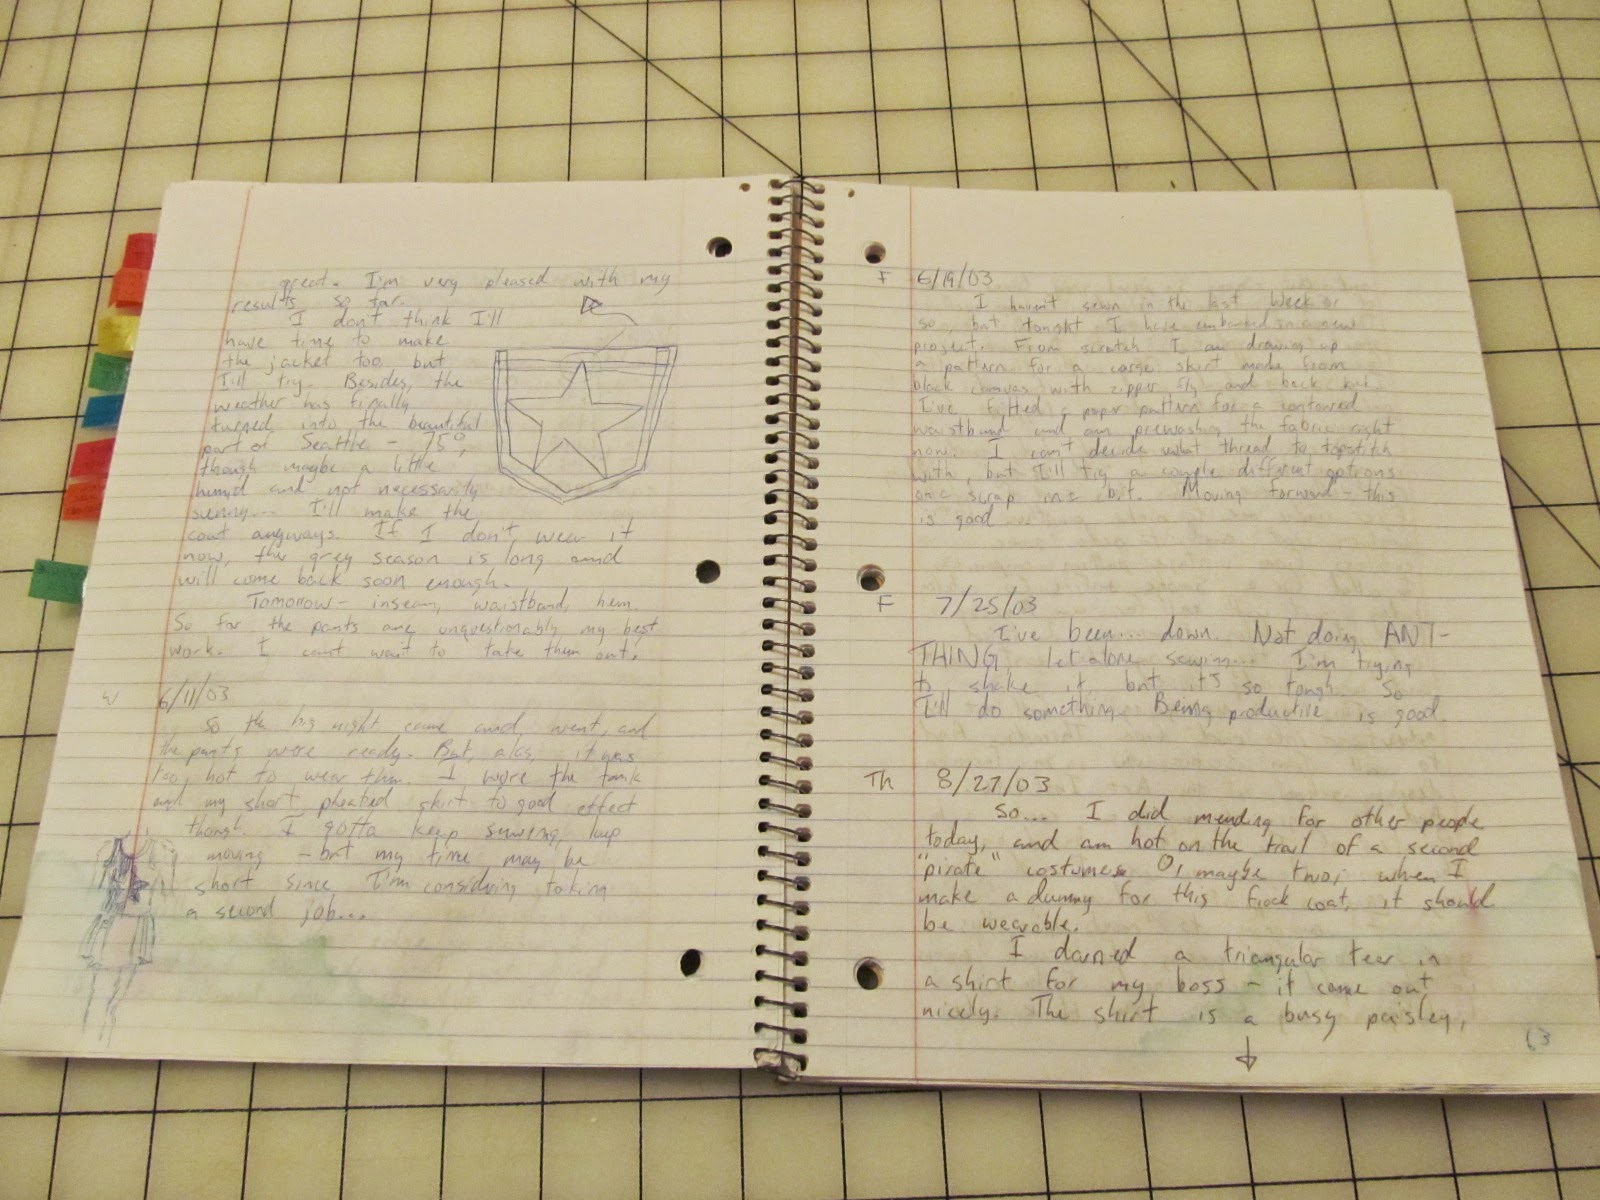 great. I'm very pleased with my
results so far.
I don't think I'll
have time to make
the jacket too, but
I'll try. Besides, the
weather has finally
turned into the beautiful
part of Seattle - 75°,
though maybe a little
humid and not necessarily
sunny... I'll make the
coat anyways. If I don't wear it
now, the grey season is long and
will come back soon enough.
Tomorrow - inseam, waistband, hem.
So far the pants are unquestionably my best
work. I can't wait to take them out.
W 6/11/03
So the big night came and went, and
the pants were ready. But, alas, it was
too hot to wear them. I wore the tank
and my short pleated skirt to good effect
though. I gotta keep sewing, keep
moving - but my time may be
short since I'm considering taking
a second job...
F 6/19/03
I haven't sewn in the last week or
so, but tonight I have embarked on a new
project. From scratch I am drawing up
a pattern for a cargo skirt made from
black canvas with zipper fly and back
I've fitted a paper pattern for a contoured
waistband and am prewashing the fabric right
now. I can't decide what thread to topstitch
with, but I'll try a couple different options
on a scrap in a bit. Moving forward - this
is good
F 7/25/03
I've been... down. Not doing ANY-
THING, let alone sewing... I'm trying
to shake it, but it's so tough. So
I'll do something. Being productive is good.
Th 8/27/03
So... I did mending for other people
today, and am hot on the trail of a second
"pirate" costume. Or maybe two; when I
make a dummy for this frock coat, it should
be wearable.
I darned a triangular tear in
a shirt for my boss - it came out
nicely. The shirt is a busy paisley,
↓
63